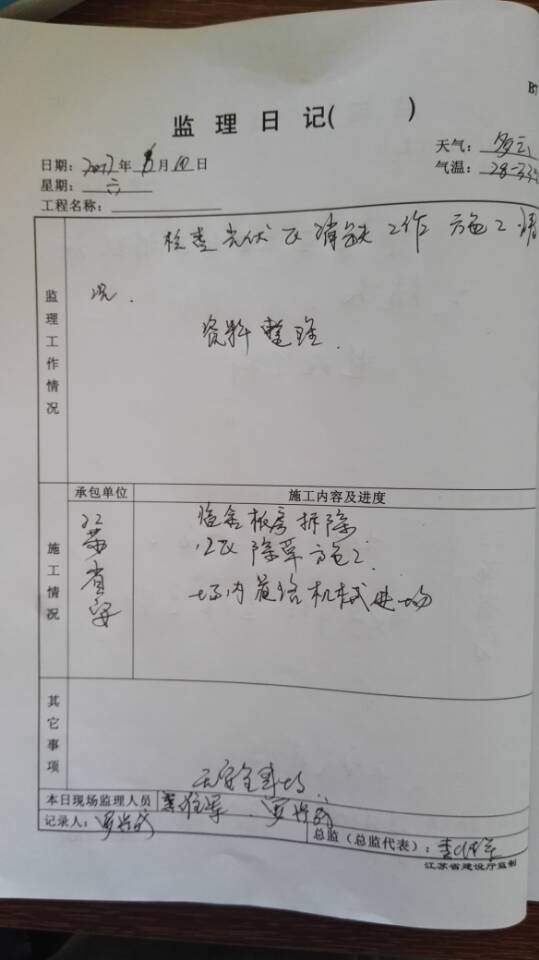 B7
监 理 日 记( )
天气: 多云
日期: 年 月10日
气温: 28-33
星期: 六
工程名称:
监理工作情况
检查光伏区消缺工作施工情
况.
资料整理.
施工情况
承包单位
施工内容及进度
江苏省安
宿舍板房拆除
12区除草施工
场内道路机械进场
其它事项
无安全事故.
本日现场监理人员
记录人:
总监(总监代表):
江苏省建设厅监制